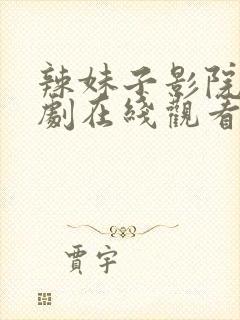 辣妹子影院
劇在綫觀看
賈宇